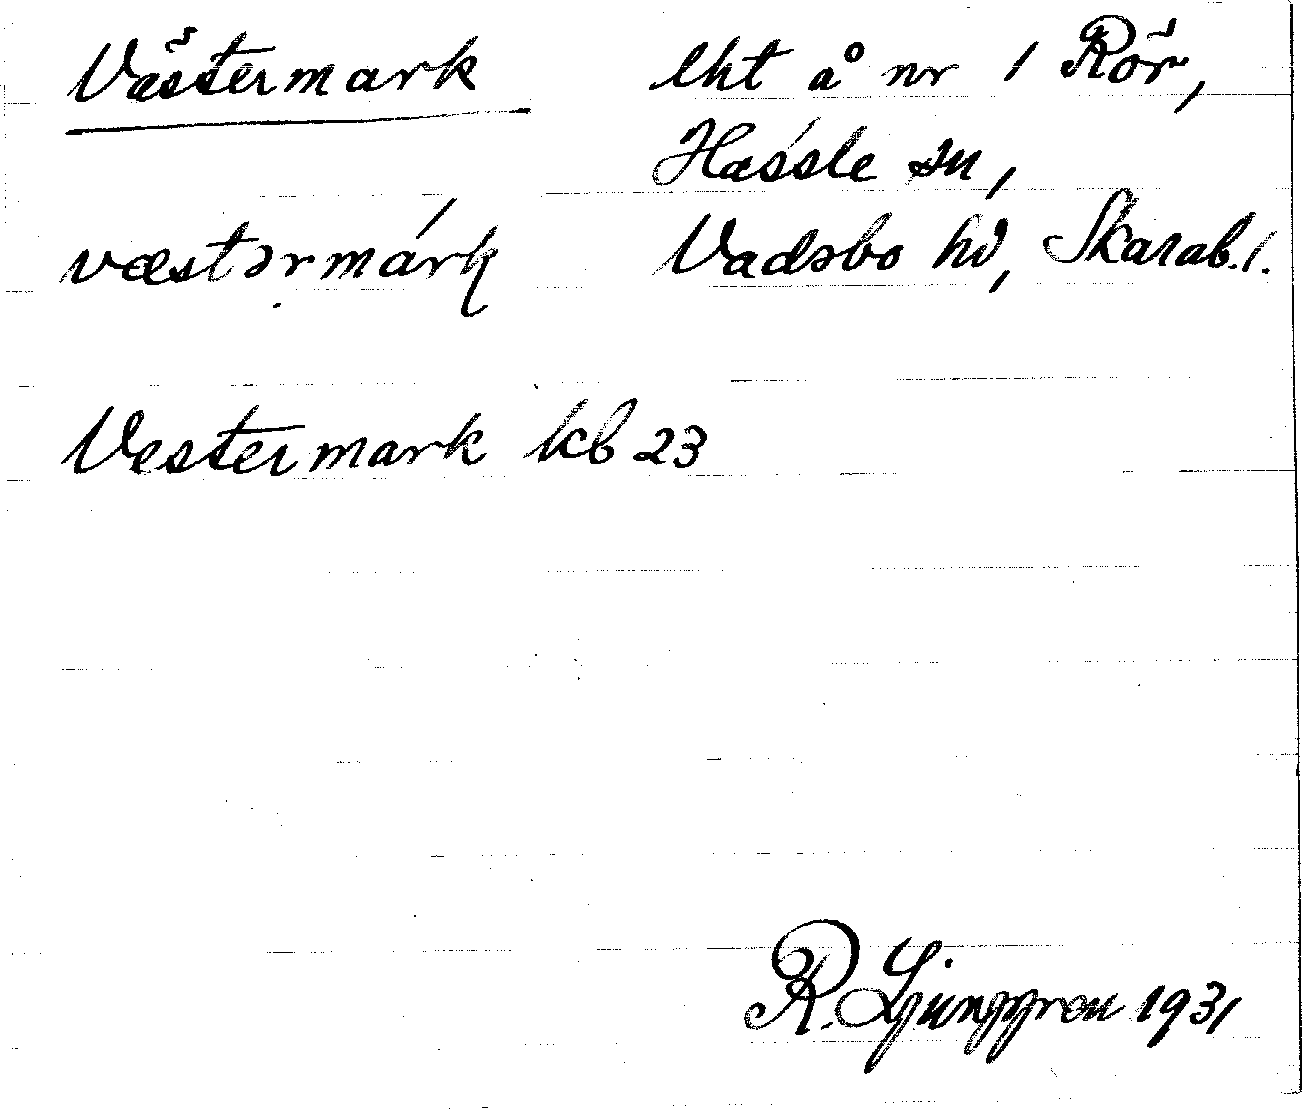 Västermark lht å nr 1 Rör,
Hassle sn,
væstərmárk Vadsbo hd, Skarab. l.
Vestermark kb 23
R. Ljunggren 1931